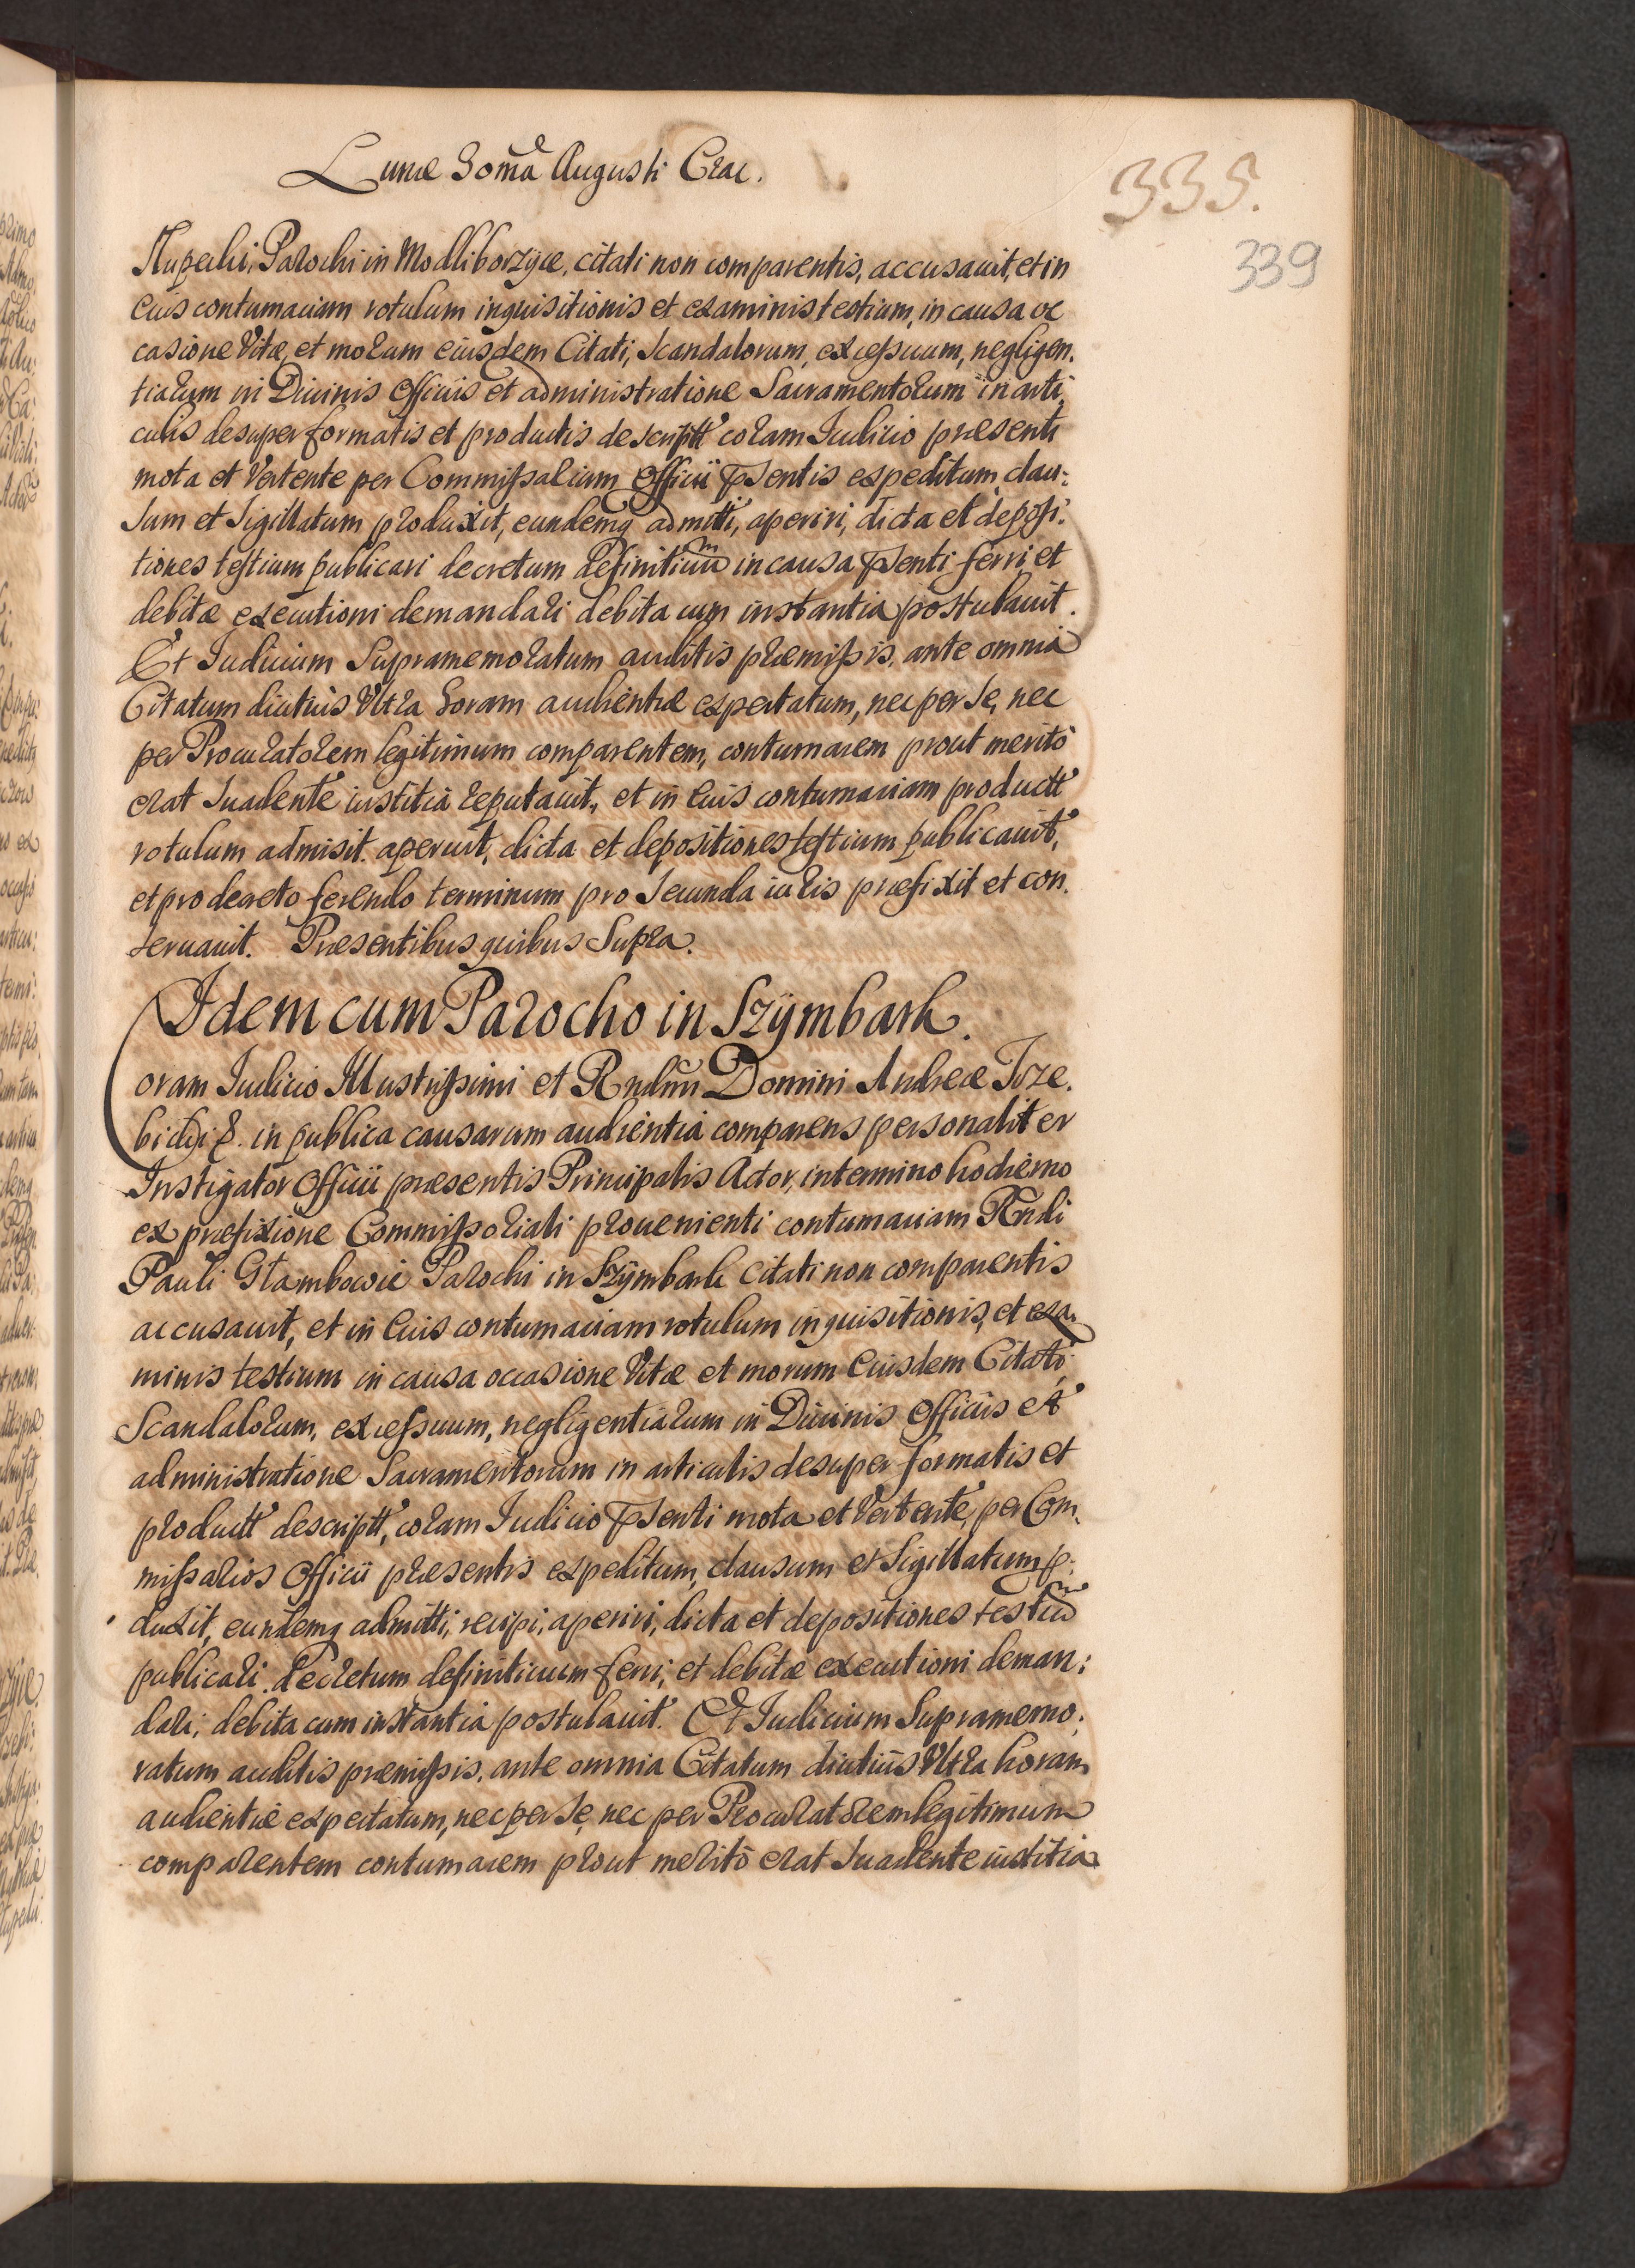 Lunæ 30ma Augusti Crac.
335.
339
Stupecki, Parochi in Modliborzyce, citati non comparentis, accusauit, et in
eius contumaciam rotulum inquisitionis et examinis testium, in causa oc
casione Vitæ, et morum eiusdem Citati, Scandalorum, excessuum, negligen.
tiarum in Diuinis Officiis et administratione Sacramentorum in arti,
culis desuper formatis et productis descriptt coram Iudicio præsenti
mota et Vertente per Commissarium Officii pñsentis expeditum, clau:
sum et Sigillatum produxit, eundemq admitti, aperiri, dicta et deposi:
tiones testium publicari decretum definitiuum in causa pñsenti ferri, et
debitæ executioni demandari debita cum instantia postulauit.
Et Iudicium Supramemoratum auditis præmissis, ante omnia
Citatum diutius Vltra horam audientiæ expectatum, nec per se, nec
per Procuratorem legitimum comparentem, contumacem prout meritò
erat suadente iustitia reputauit, et in eius contumaciam productt
rotulum admisit, aperuit, dicta et depositiones testium publicauit,
et pro decreto ferendo terminum pro Secunda iuris præfixit et con.
seruauit. Præsentibus quibus Supra.
Idem cum Parocho in Szÿmbark.
Coram Iudicio Illustrissimi et Rndmi Domini Andreæ Trze.
bicki &. in publica causarum audientia comparens personaliter
Instigator Officii præsentis Principalis Actor, in termino hodierno
ex præfixione Commissoriali prouenienti contumaciam Rndi
Pauli Stambowic Parochi in Szÿmbark citati non comparentis
accusauit, et in eius contumaciam rotulum inquisitionis, et exa.
minis testium in causa occasione Vitæ et morum eiusdem Citati,
Scandalorum, excessuum, negligentiarum in Diuinis Officiis et
administratione Sacramentorum in articulis desuper formatis et
productt descriptt, coram Iudicio pñsenti mota et Vertente, per Com.
missarios Officii præsentis expeditum, clausum et Sigillatum p.
duxit, eundemq admitti, recipi, aperiri, dicta et depositiones testium
publicari. Decretum definitiuum ferri, et debitæ executioni deman:
dari, debita cum instantia postulauit. Et Iudicium Supramemo.
ratum auditis præmissis, ante omnia Citatum diutius Vltra horam
audientiæ expectatum, nec per se, nec per Procuratorem legitimum
comparentem contumacem prout meritò erat suadente iustitia